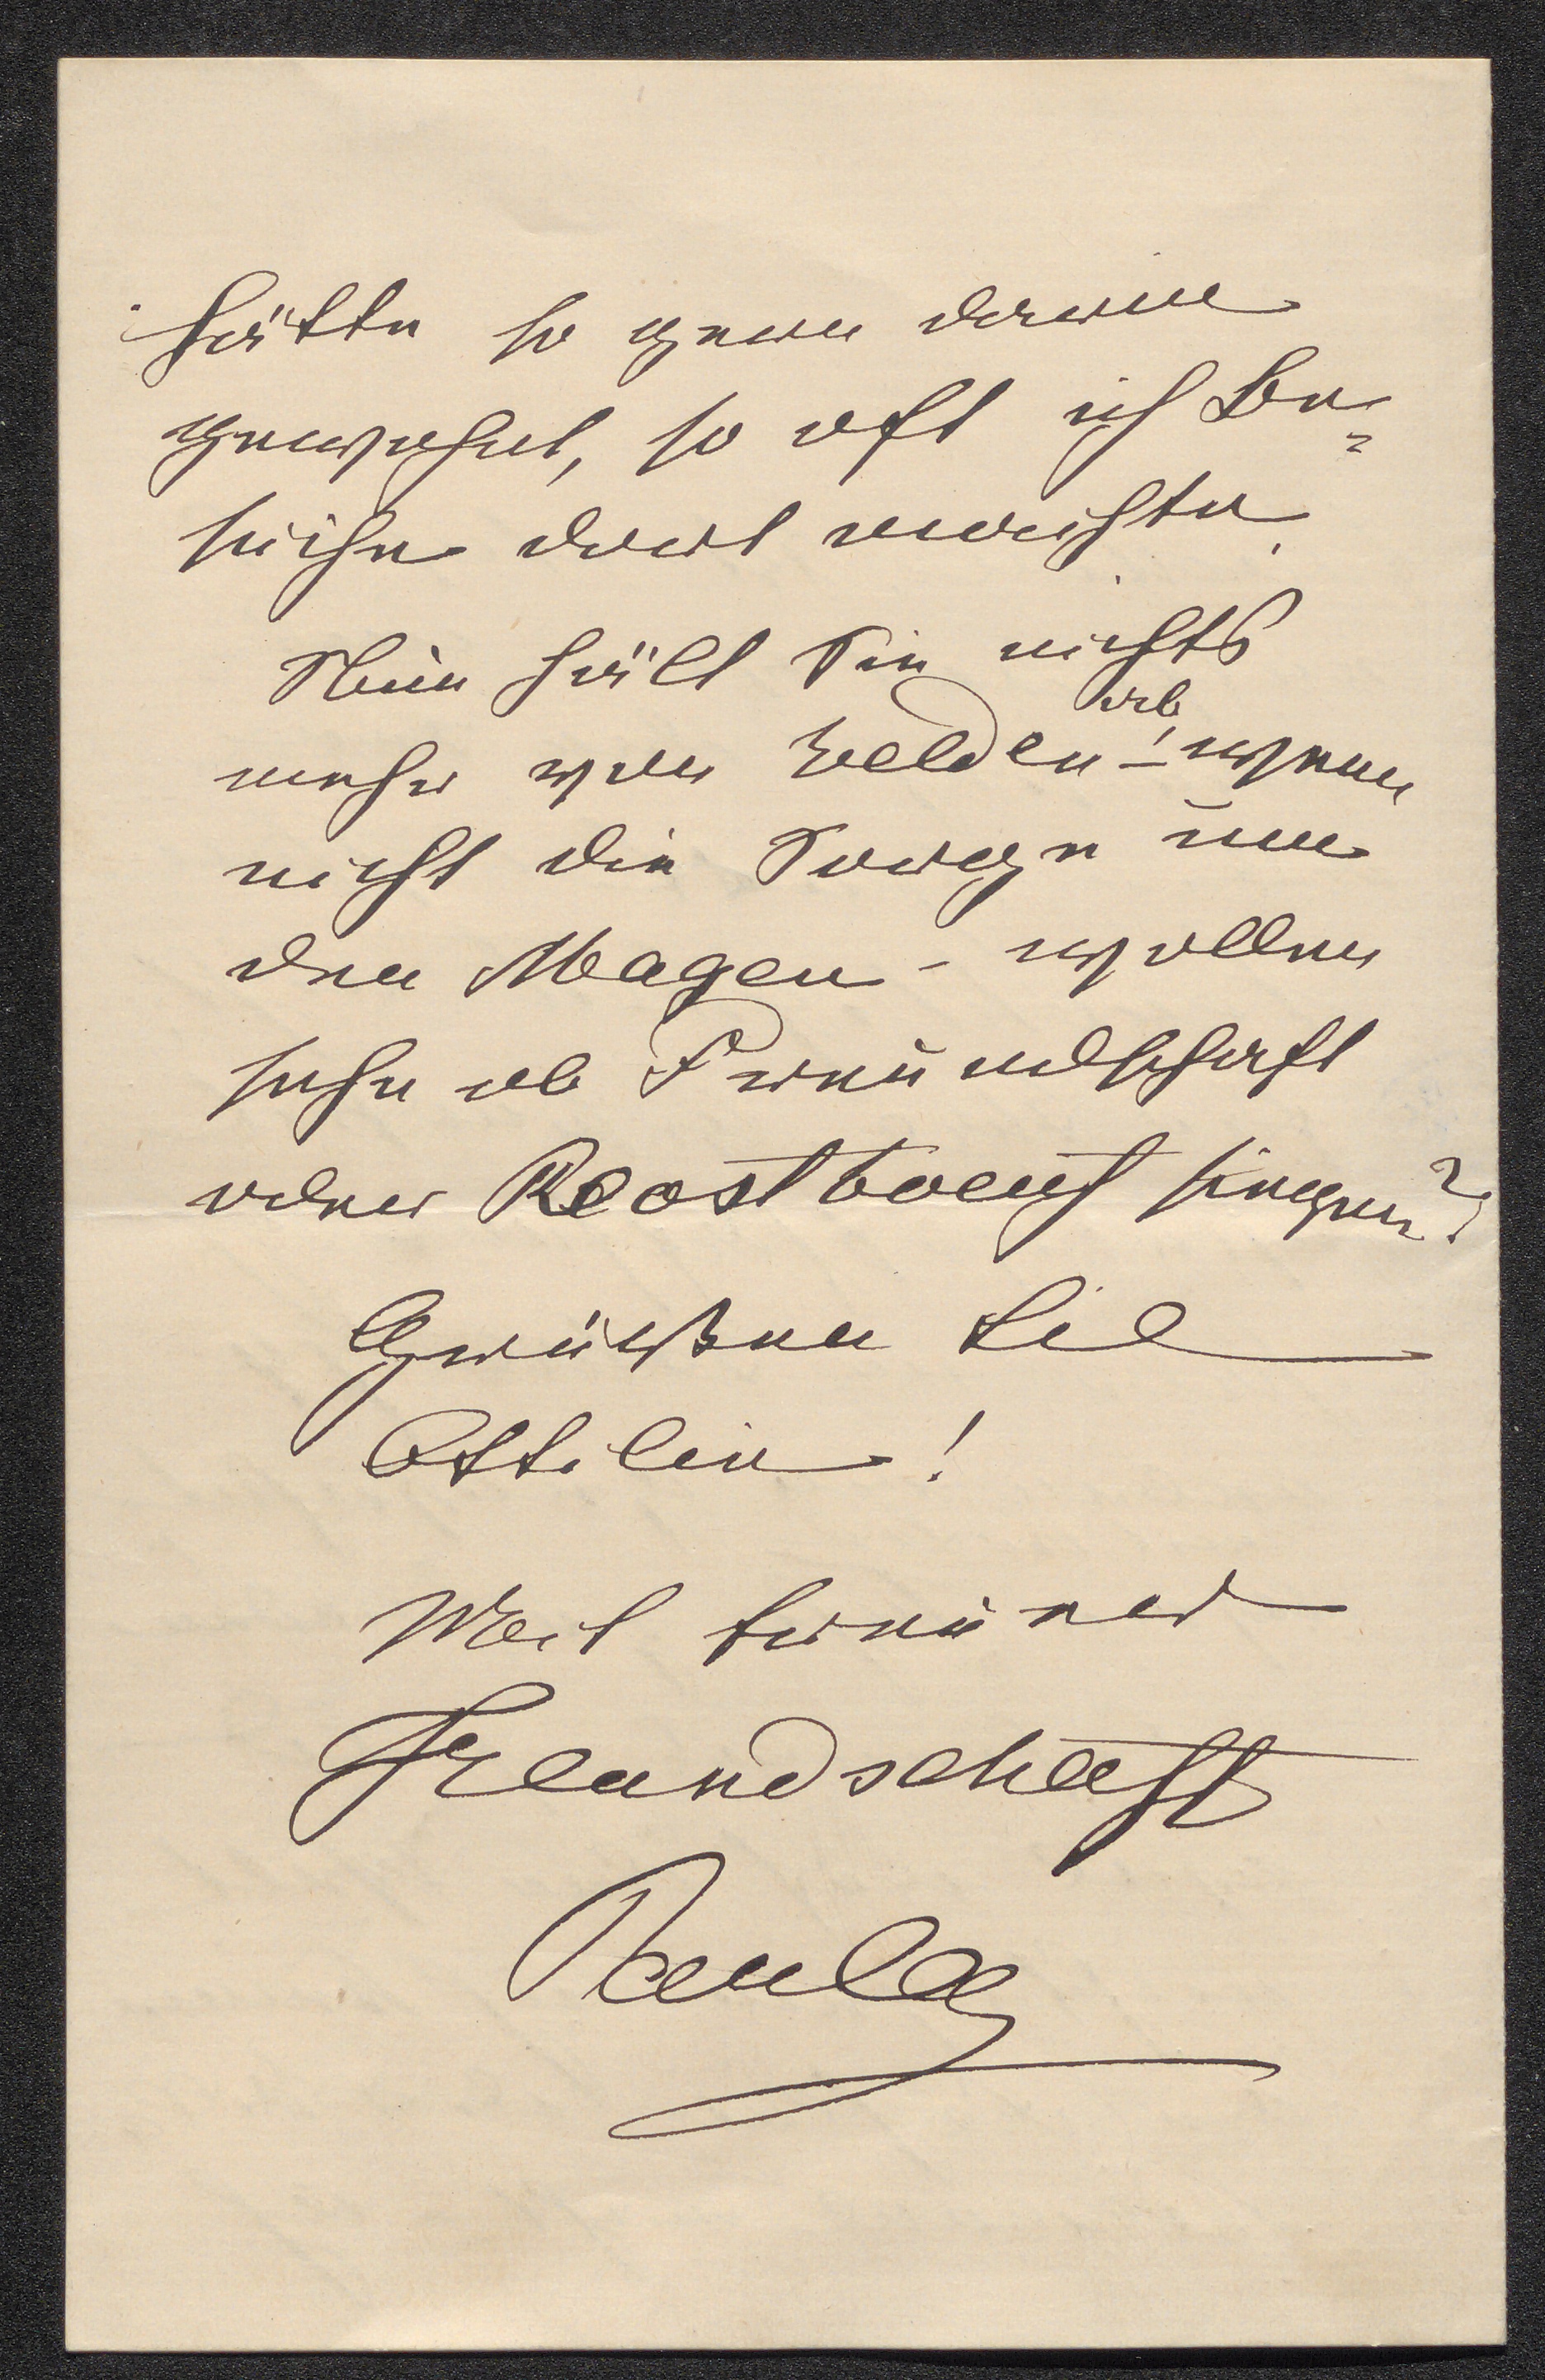 hätte so gern darin
gewohnt, so oft ich Be¬
suche dort machte.
Nun hält Sie nichts
mehr von Velden ab! – wenn
nicht die Sorge um
den Magen – wollen
sehn ob Freundschaft
oder Roastboeuf siegen?
Grüßen Sie
Ottilie!
Mit treuer
Freundschaft
Paula